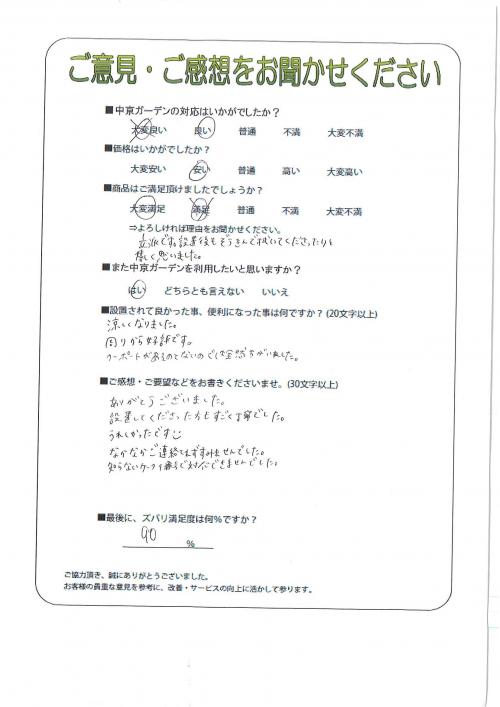 ご意見・ご感想をお聞かせください
■中京ガーデンの対応はいかがでしたか？
大変良い 良い 普通 不満 大変不満
■価格はいかがでしたか？
大変安い 安い 普通 高い 大変高い
■商品はご満足頂けましたでしょうか？
大変満足 満足 普通 不満 大変不満
⇒よろしければ理由をお聞かせください。
立派です。設置後もぞうきんで拭いてくださったりと
嬉しく思いました。
■また中京ガーデンを利用したいと思いますか？
はい どちらとも言えない いいえ
■設置されて良かった事、便利になった事は何ですか？(20文字以上)
涼しくなりました。
周りから好評です。
カーポートがあるのとないのでは全然ちがいました。
■ご感想・ご要望などをお書きくださいませ。(30文字以上)
ありがとうございました。
設置してくださった方もすごく丁寧でした。
うれしかったです
なかなかご連絡とれずすみませんでした。
知らない番号で対応できませんでした。
■最後に、ズバリ満足度は何%ですか？
90 %
ご協力頂き、誠にありがとうございました。
お客様の貴重な意見を参考に、改善・サービスの向上に活かして参ります。